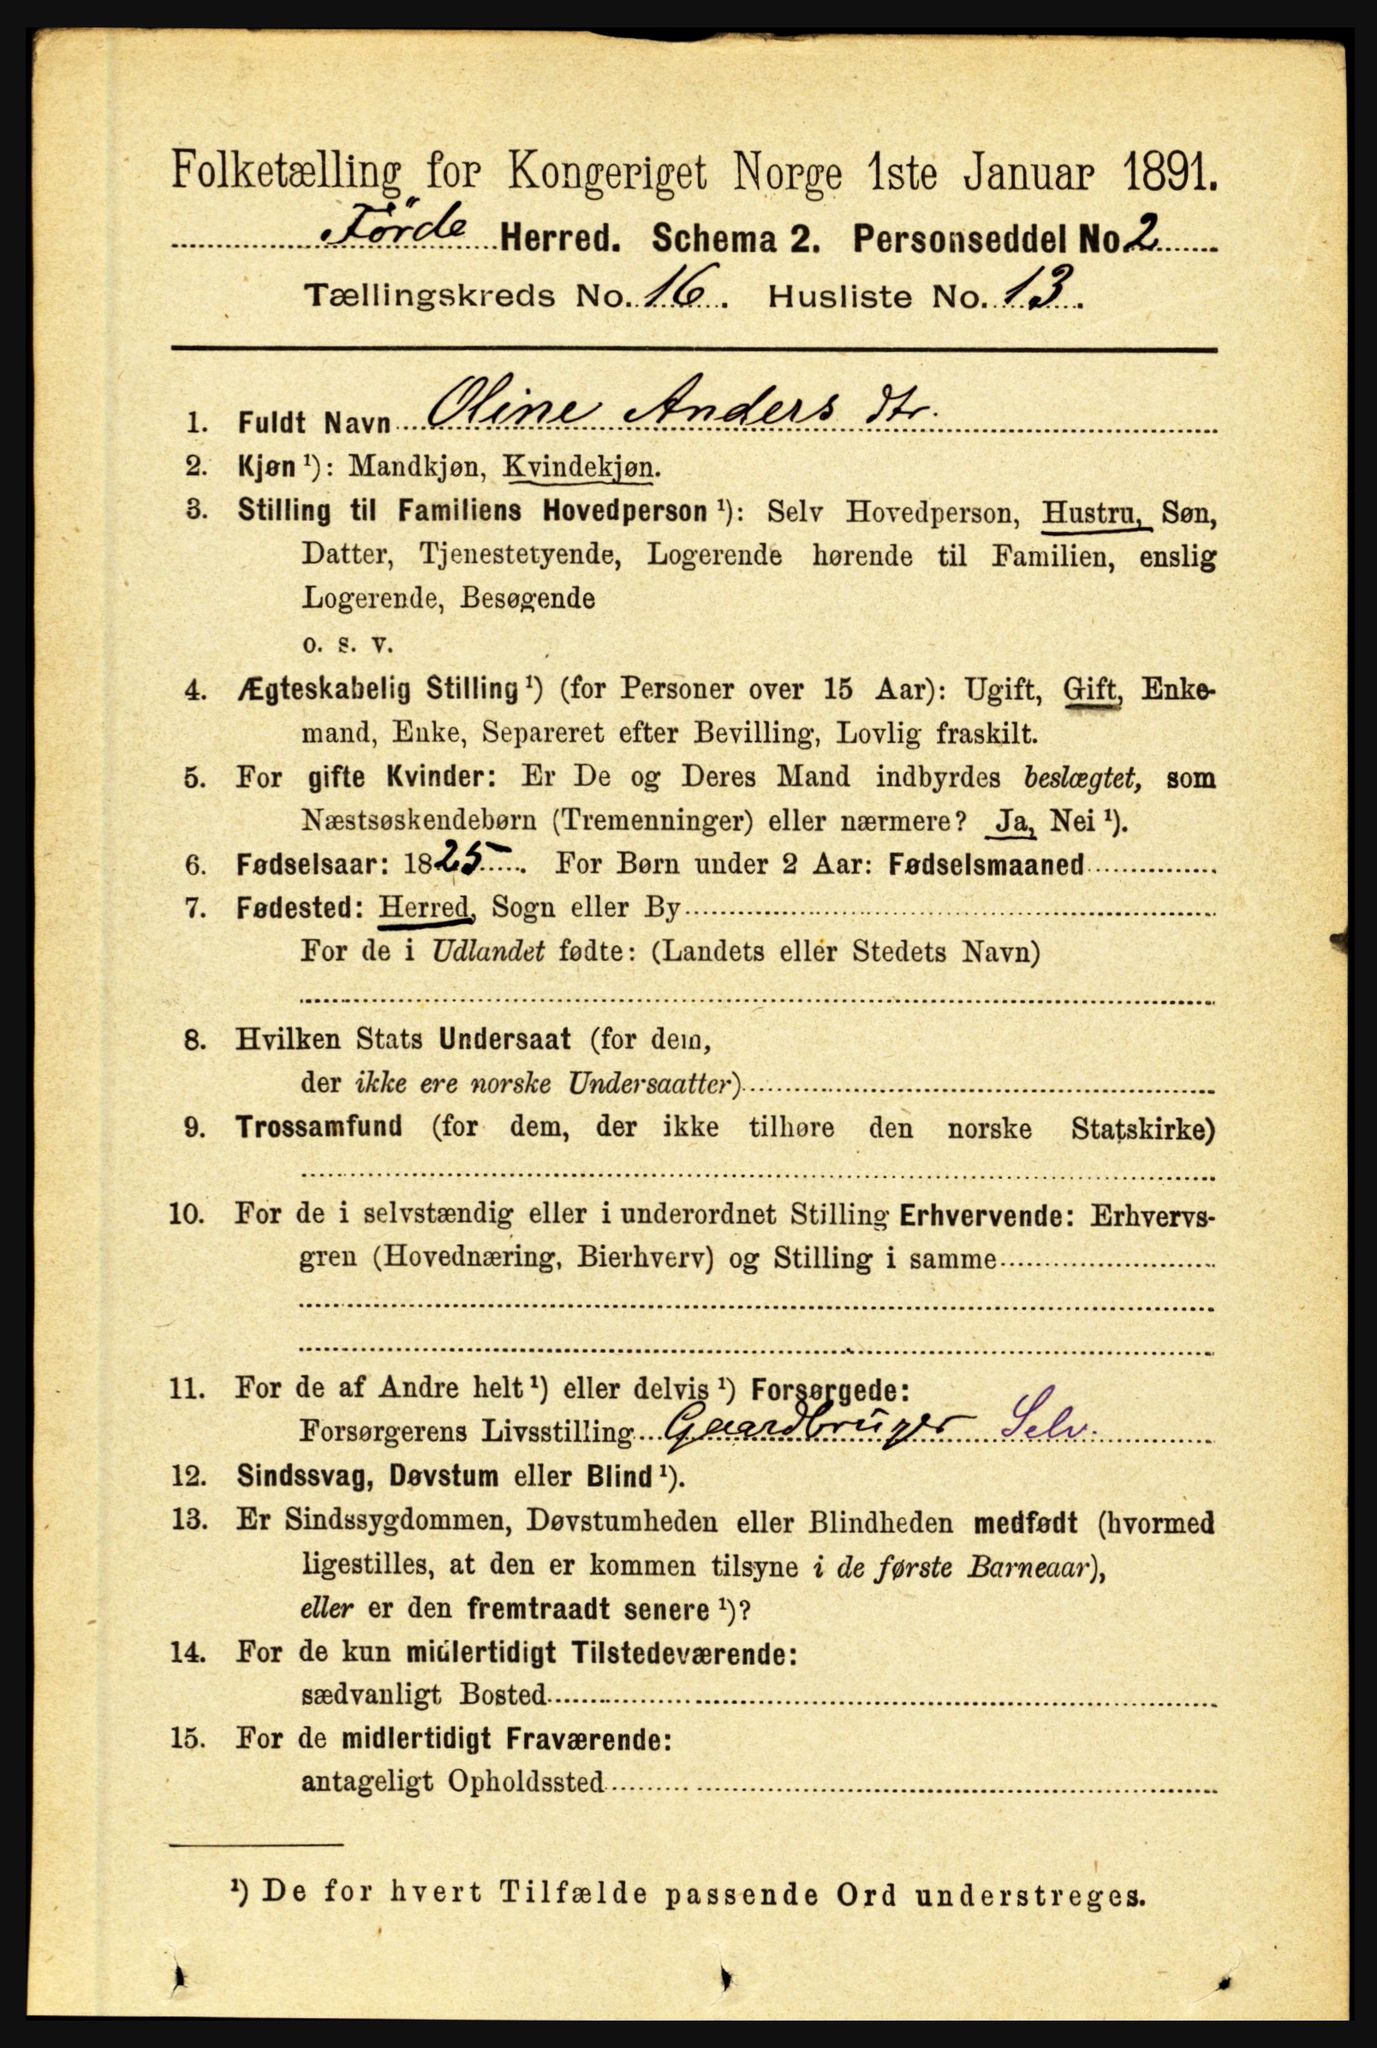 Folketælling for Kongeriget Norge 1ste Januar 1891.
Førde Herred. Schema 2. Personseddel No 2
Tællingskreds No. 16. Husliste No. 13.
1. Fuldt Navn Oline Anders dtr.
2. Kjøn ¹): Mandkjøn, Kvindekjøn.
3. Stilling til Familiens Hovedperson ¹): Selv Hovedperson, Hustru, Søn,
Datter, Tjenestetyende, Logerende hørende til Familien, enslig
Logerende, Besøgende
o. s. v.
4. Ægteskabelig Stilling ¹) (for Personer over 15 Aar): Ugift, Gift, Enke-
mand, Enke, Separeret efter Bevilling, Lovlig fraskilt.
5. For gifte Kvinder: Er De og Deres Mand indbyrdes beslægtet, som
Næstsøskendebørn (Tremenninger) eller nærmere? Ja, Nei ¹).
6. Fødselsaar: 1825. For Børn under 2 Aar: Fødselsmaaned
7. Fødested: Herred, Sogn eller By
For de i Udlandet fødte: (Landets eller Stedets Navn)
8. Hvilken Stats Undersaat (for dem,
der ikke ere norske Undersaatter)
9. Trossamfund (for dem, der ikke tilhøre den norske Statskirke)
10. For de i selvstændig eller i underordnet Stilling Erhvervende: Erhvervs-
gren (Hovednæring, Bierhverv) og Stilling i samme
11. For de af Andre helt ¹) eller delvis ¹) Forsørgede:
Forsørgerens Livsstilling Gaardbruger Selv.
12. Sindssvag, Døvstum eller Blind ¹).
13. Er Sindssygdommen, Døvstumheden eller Blindheden medfødt (hvormed
ligestilles, at den er kommen tilsyne i de første Barneaar),
eller er den fremtraadt senere ¹)?
14. For de kun midlertidigt Tilstedeværende:
sædvanligt Bosted
15. For de midlertidigt Fraværende:
antageligt Opholdssted
¹) De for hvert Tilfælde passende Ord understreges.